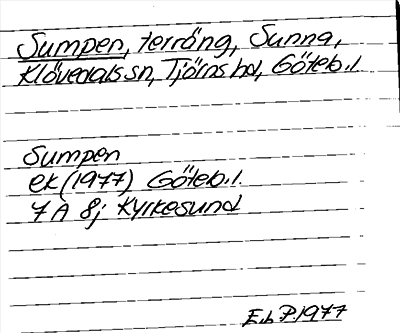 Sumpen, terräng, Sunna,
Klövedals sn, Tjörns hd, Göteb. l.
Sumpen
ek (1977) Göteb. l.
7 A 8j Kyrkesund
E.b P. 1977